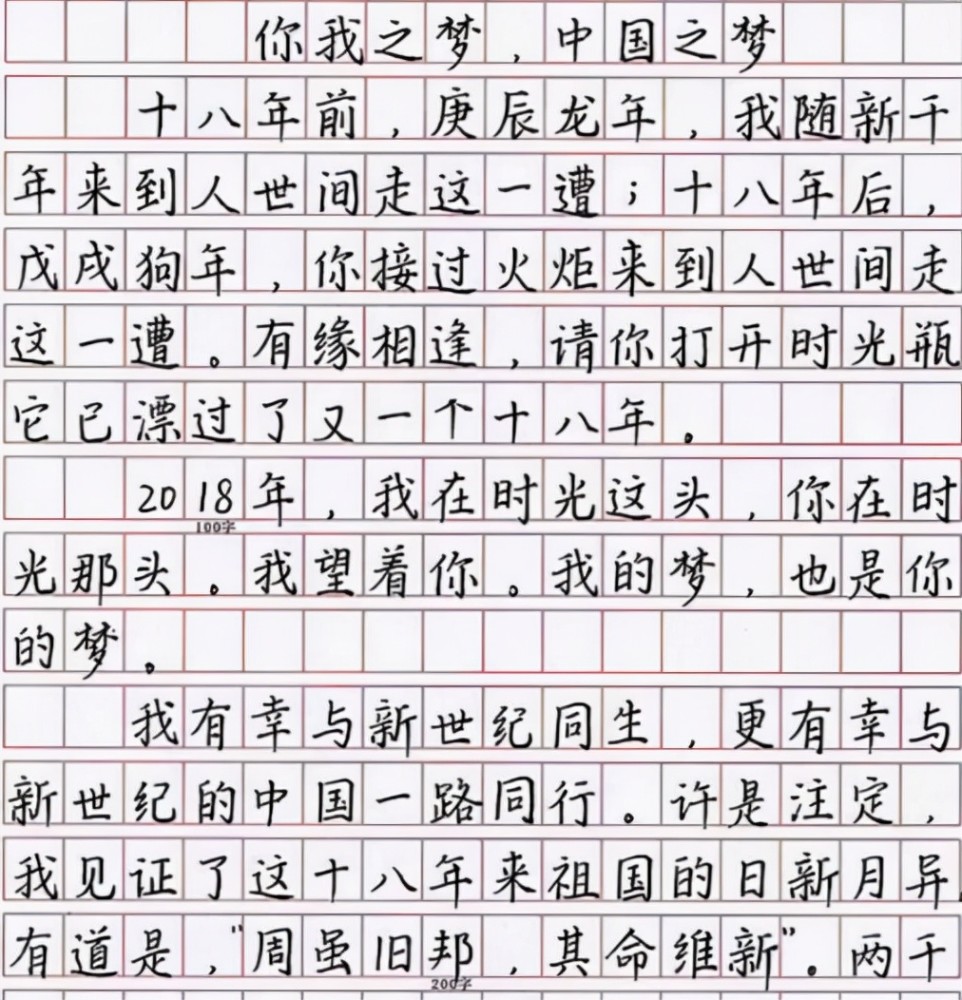 你我之梦，中国之梦
十八年前，庚辰龙年，我随新千
年来到人世间走这一遭；十八年后，
戊戌狗年，你接过火炬来到人世间走
这一遭。有缘相逢，请你打开时光瓶
它已漂过了又一个十八年。
2018年，我在时光这头，你在时
100字
光那头。我望着你。我的梦，也是你
的梦。
我有幸与新世纪同生，更有幸与
新世纪的中国一路同行。许是注定，
我见证了这十八年来祖国的日新月异.
有道是，"周虽旧邦，其命维新"。两千
200字